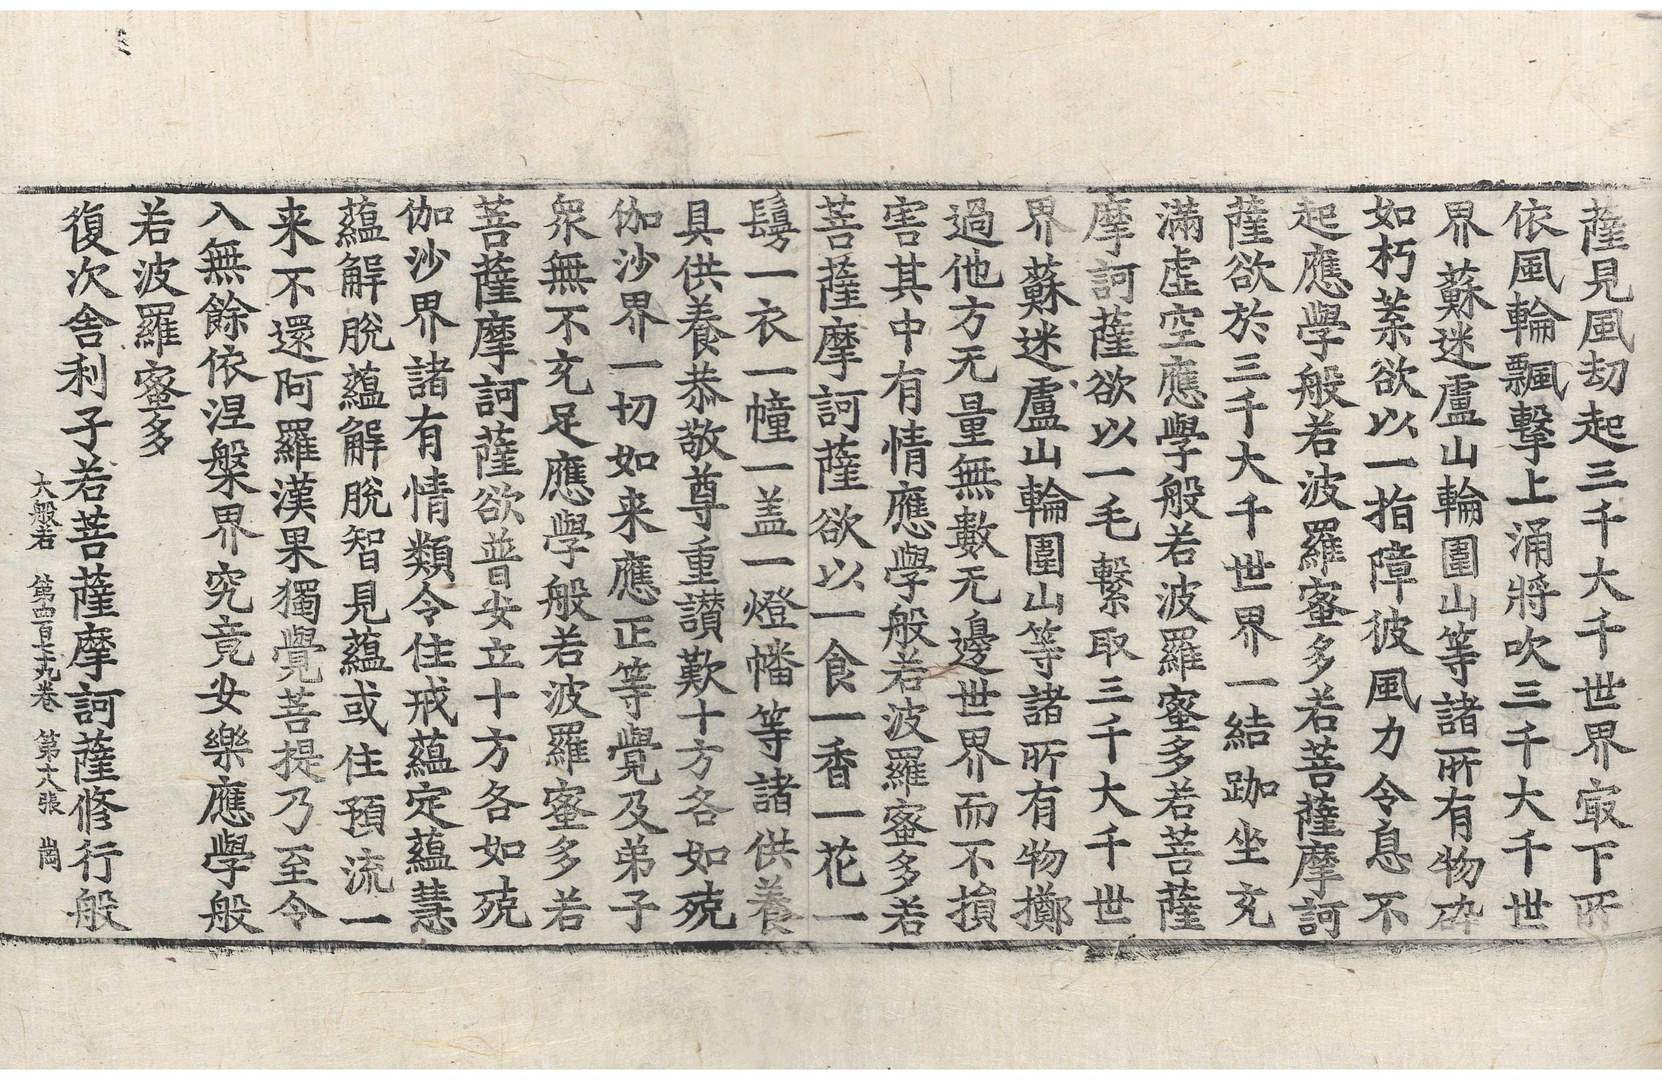 薩見風劫起三千大千世界㝡下所
依風輪飄擊上涌將吹三千大千世
界蘇迷盧山輪圍山等諸所有物碎
如朽葉欲以一指障彼風力令息不
起應學般若波羅蜜多若菩薩摩訶
薩欲於三千大千世界一結跏坐充
滿虛空應學般若波羅蜜多若菩薩
摩訶薩欲以一毛繫取三千大千世
界蘇迷盧山輪圍山等諸所有物擲
過他方无量無數无邊世界而不損
害其中有情應學般若波羅蜜多若
菩薩摩訶薩欲以一食一香一花一
鬘一衣一幢一盖一燈幡等諸供養
具供養恭敬尊重讃歎十方各如殑
伽沙界一切如来應正等覺及弟子
衆無不充足應學般若波羅蜜多若
菩薩摩訶薩欲普安立十方各如殑
伽沙界諸有情類令住戒蘊定蘊慧
蘊解脫蘊解脫智見蘊或住預流一
来不還阿羅漢果獨覺菩提乃至令
入無餘依涅槃界究竟安樂應學般
若波羅蜜多
復次舍利子若菩薩摩訶薩修行般
大般若 第四百七十九卷 第六張 崗